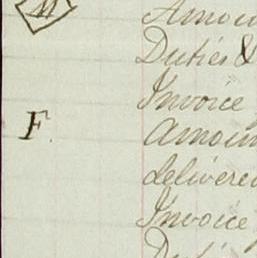 M Amoun
Duties &
Invoice
F. Amoun
delivered
Invoice
Duti